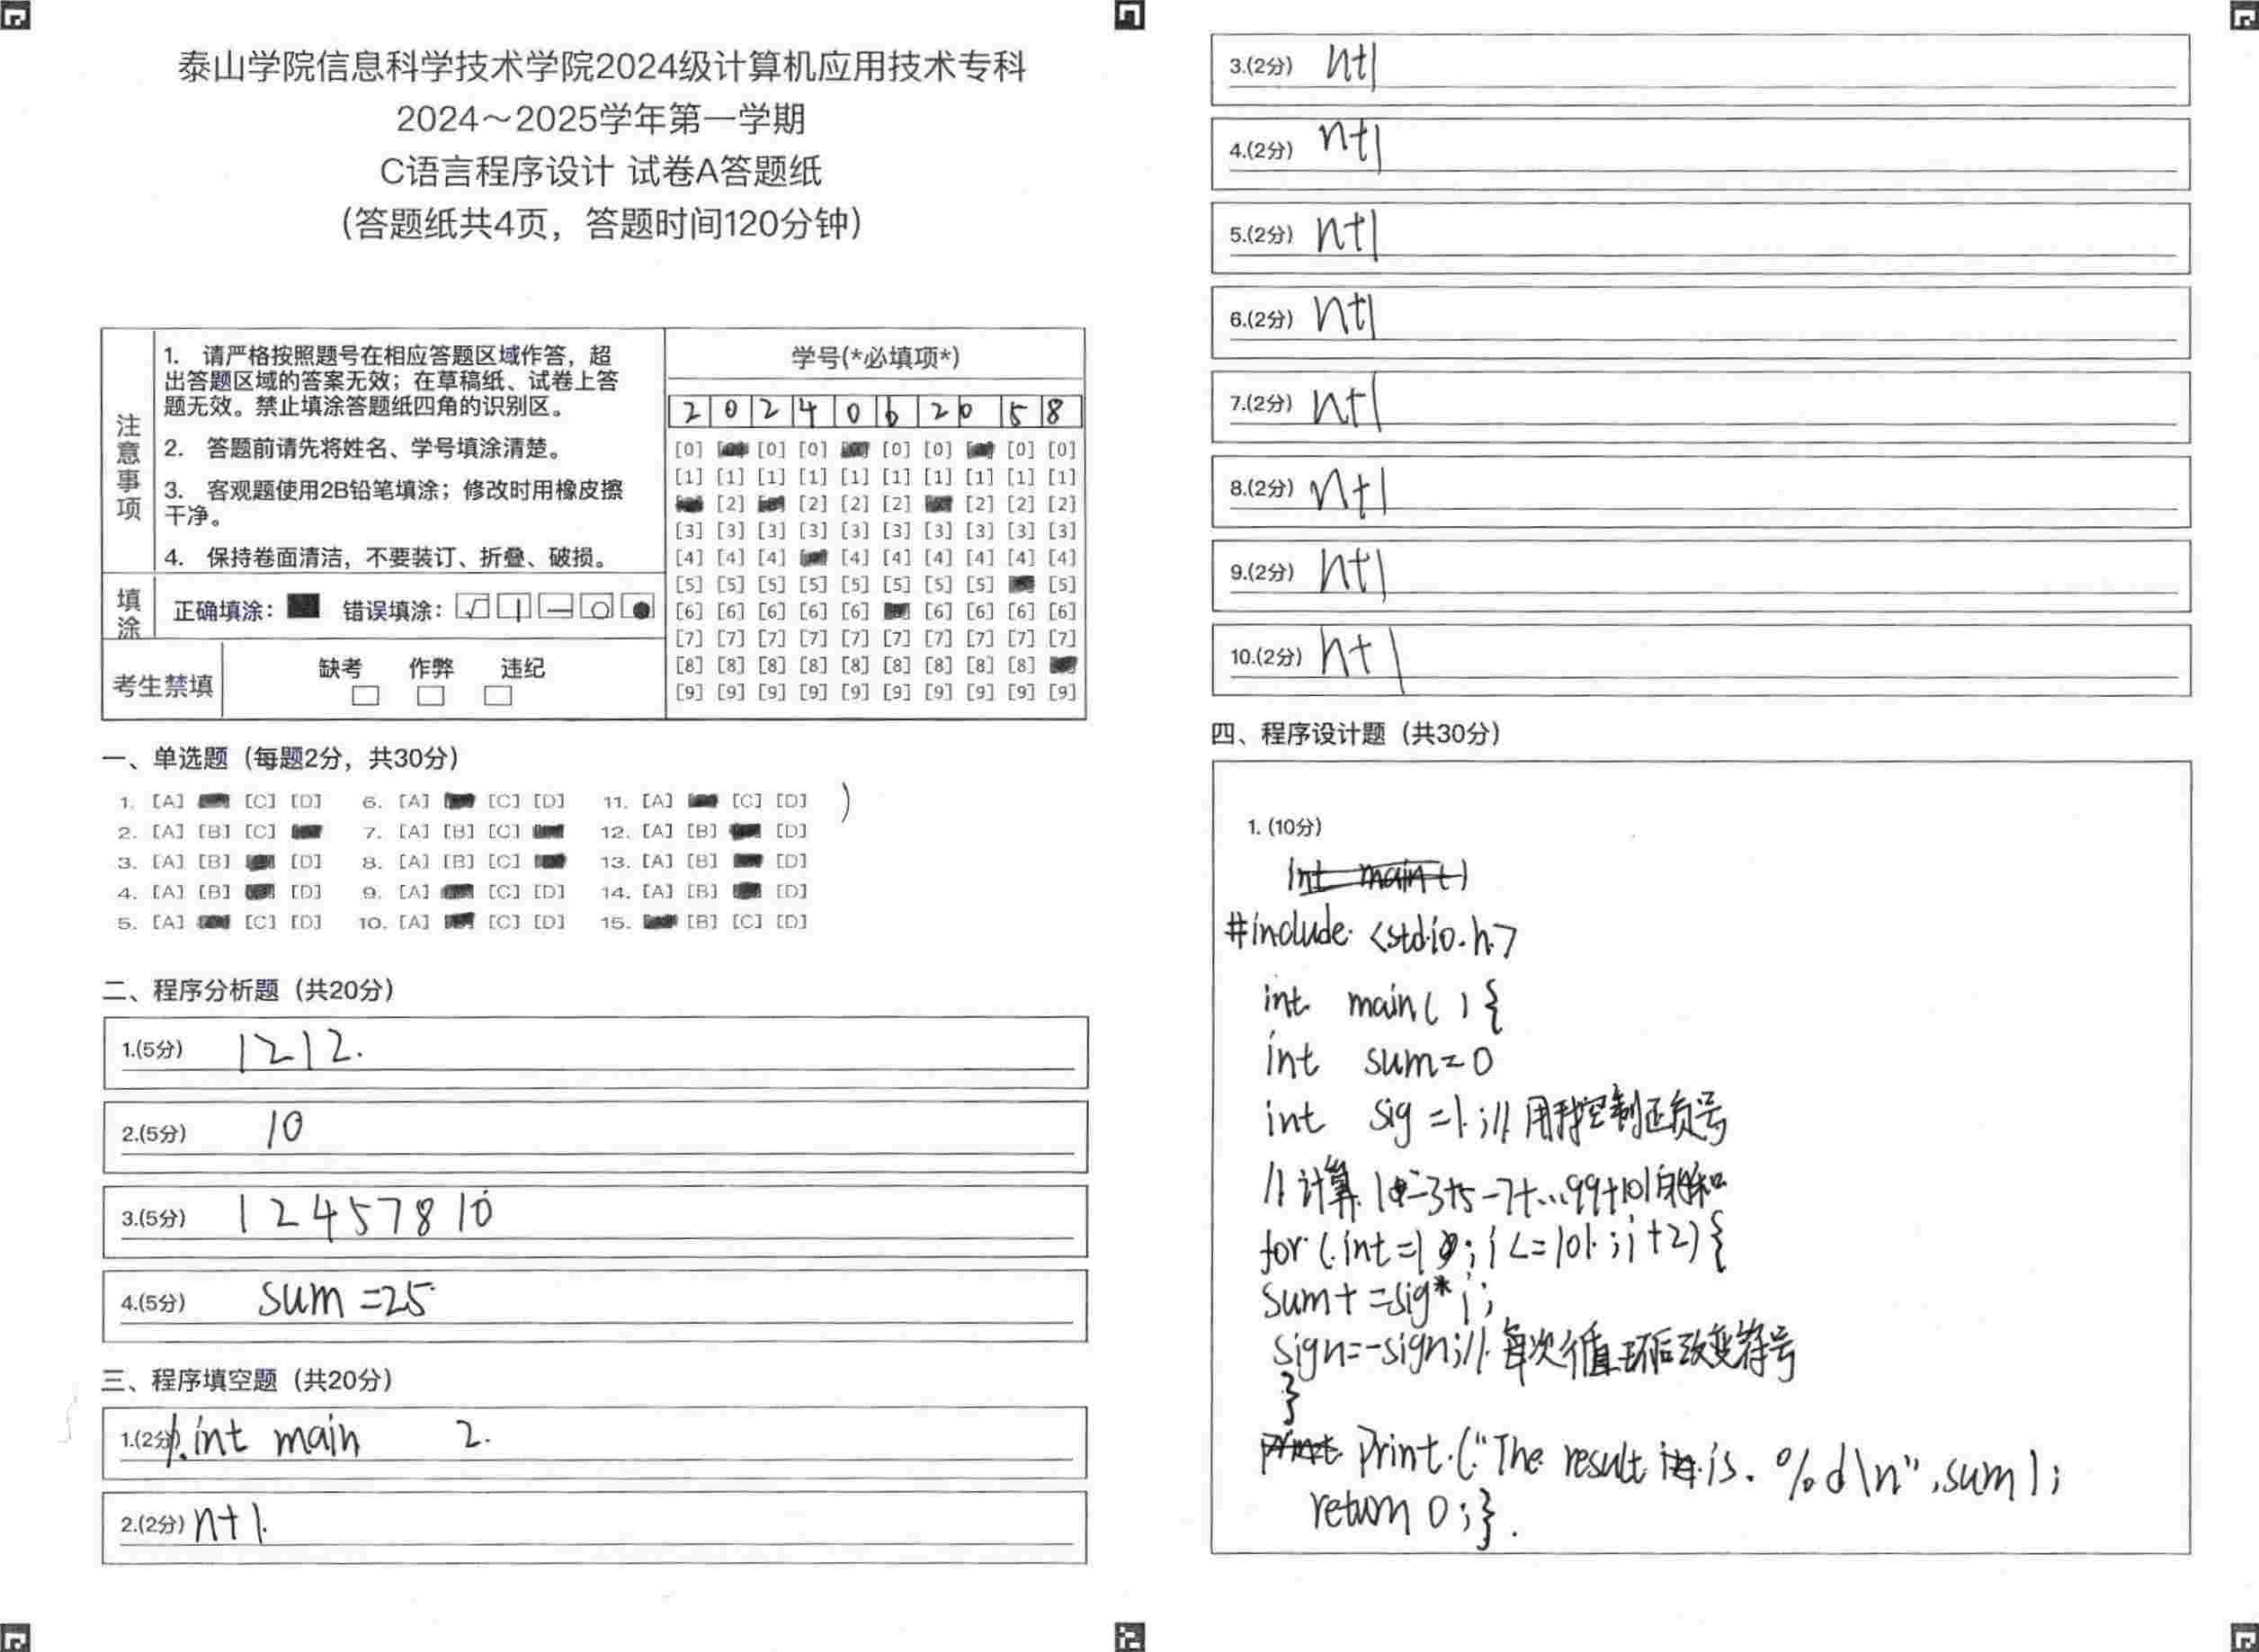 泰山学院信息科学技术学院2024级计算机应用技术专科
2024～2025学年第一学期
C语言程序设计 试卷A答题纸
(答题纸共4页，答题时间120分钟)
注意事项
1. 请严格按照题号在相应答题区域作答，超
出答题区域的答案无效；在草稿纸、试卷上答
题无效。禁止填涂答题纸四角的识别区。
2. 答题前请先将姓名、学号填涂清楚。
3. 客观题使用2B铅笔填涂；修改时用橡皮擦
干净。
4. 保持卷面清洁，不要装订、折叠、破损。
填涂
正确填涂： 错误填涂：
考生禁填
缺考 作弊 违纪
学号(*必填项*)
2 0 2 4 0 6 2 0 5 8
[0] [0] [0] [0] [0] [0] [0]
[1] [1] [1] [1] [1] [1] [1] [1] [1] [1]
[2] [2] [2] [2] [2] [2] [2]
[3] [3] [3] [3] [3] [3] [3] [3] [3] [3]
[4] [4] [4] [4] [4] [4] [4] [4] [4]
[5] [5] [5] [5] [5] [5] [5] [5] [5]
[6] [6] [6] [6] [6] [6] [6] [6] [6]
[7] [7] [7] [7] [7] [7] [7] [7] [7] [7]
[8] [8] [8] [8] [8] [8] [8] [8] [8]
[9] [9] [9] [9] [9] [9] [9] [9] [9] [9]
一、单选题（每题2分，共30分）
1. [A] [C] [D] 6. [A] [C] [D] 11. [A] [C] [D]
2. [A] [B] [C] 7. [A] [B] [C] 12. [A] [B] [D]
3. [A] [B] [D] 8. [A] [B] [C] 13. [A] [B] [D]
4. [A] [B] [D] 9. [A] [C] [D] 14. [A] [B] [D]
5. [A] [C] [D] 10. [A] [C] [D] 15. [B] [C] [D]
二、程序分析题（共20分）
1.(5分) 1212.
2.(5分) 10
3.(5分) 1 2 4 5 7 8 10
4.(5分) sum =25
三、程序填空题（共20分）
1.(2分) 1.int main 2.
2.(2分) n+1.
3.(2分) n+1
4.(2分) n+1
5.(2分) n+1
6.(2分) n+1
7.(2分) n+1
8.(2分) n+1
9.(2分) n+1
10.(2分) n+1
四、程序设计题（共30分）
1. (10分)
int main()
#include <stdio.h>
int main( ) {
int sum=0
int sig =1;// 用我控制正负号
// 计算 1-3+5-7+...99+101的和
for (int=1; i<=101; i+2) {
sum+=sig*i;
sign=-sign;// 每次循环后改变符号
}
print print("The result is. %d\n",sum);
return 0;}.